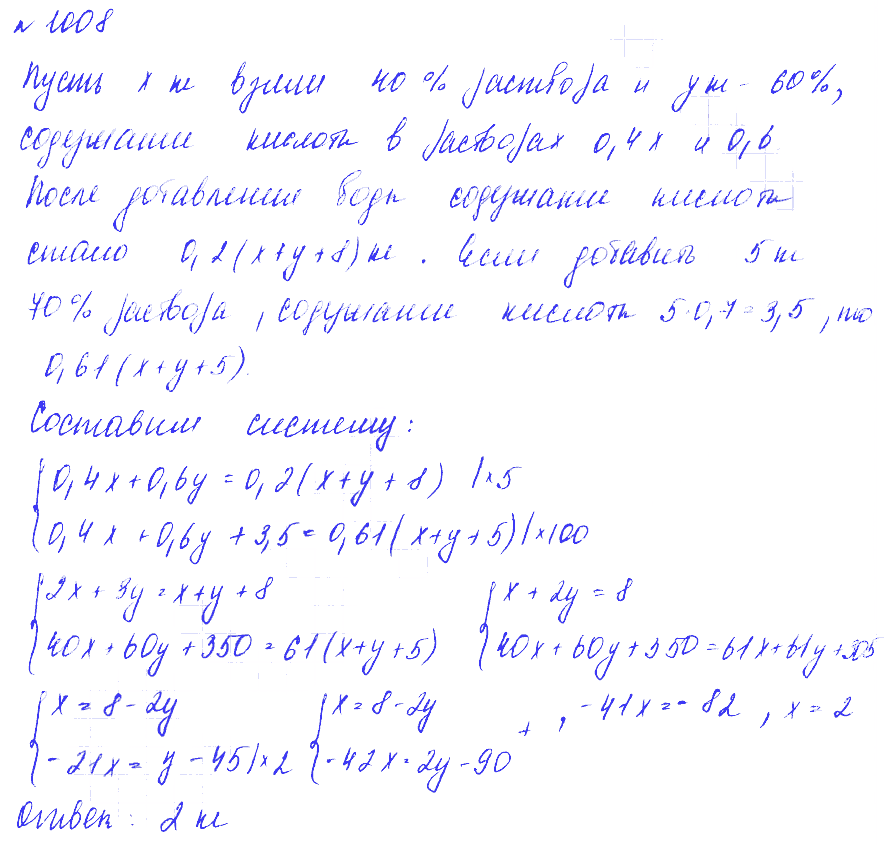 № 1008
Пусть x кг взяли 40% раствора и y кг - 60%,
содержание кислоты в растворах 0,4x и 0,6
После добавления воды содержание кислоты
стало 0,2(x+y+8) кг. Если добавить 5 кг
70% раствора, содержание кислоты 5·0,7=3,5, то
0,61(x+y+5).
Составим систему:
0,4x+0,6y=0,2(x+y+8) |×5
0,4x+0,6y+3,5=0,61(x+y+5) |×100
2x+3y=x+y+8 x+2y=8
40x+60y+350=61(x+y+5) 40x+60y+350=61x+61y+305
x=8-2y x=8-2y + , -41x=-82, x=2
-21x=y-45 |×2 -42x=2y-90
Ответ: 2 кг